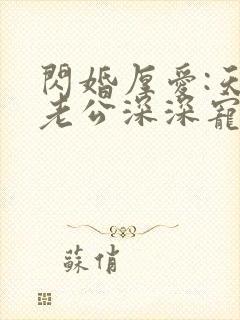 閃婚厚愛:天
老公深深寵
蘇俏